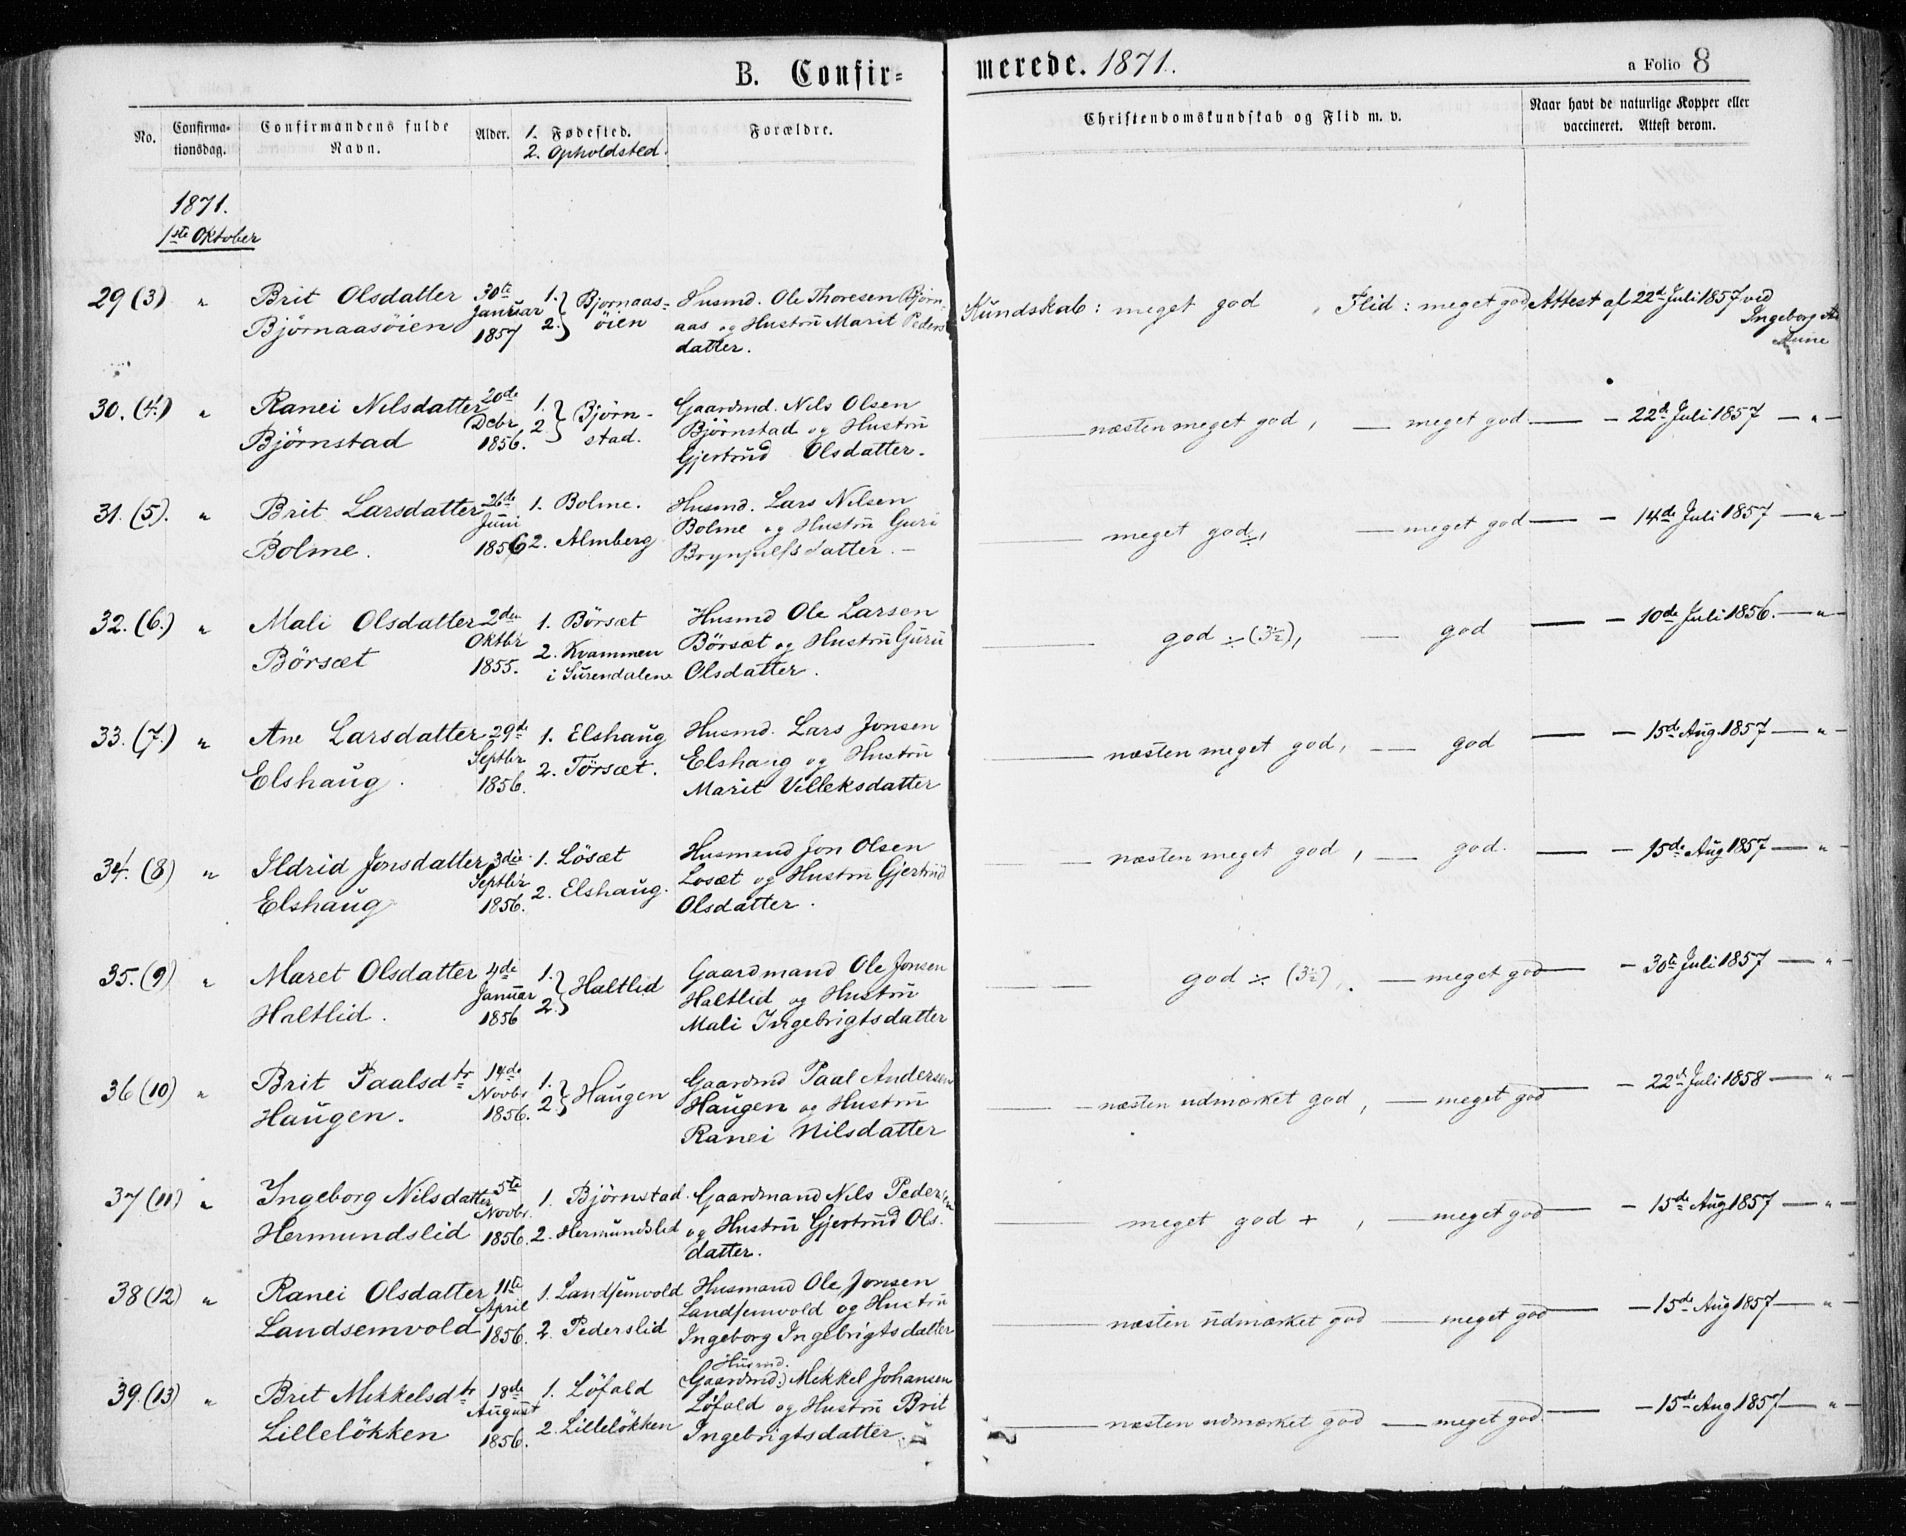 B. Confir=
merede. 1871.
a Folio 8
No.
Confirma-
tionsdag.
Confirmandens fulde
Navn.
Alder.
1. Fødested.
2. Opholdsted.
Forældre.
Christendomskundskab og Flid m. v.
Naar havt de naturlige Kopper eller
vaccineret. Attest derom.
1871.
1ste Oktober
29 (3) " Brit Olsdatter
Björnaasöien
30te
Januar
1857
1.
2.
Bjornaas-
öien
Husmd. Ole Thoresen Björn
aas og Hustru Marit Peders
datter.
Kundskab: meget god, Flid: meget god, Attest af 22d Juli 1857 ved
Ingeborg
Aune
30. (4.) " Ranei Nilsdatter
Björnstad
20de
Decbr
1856.
1.
2.
Björn-
stad.
Gaardmd. Nils Olsen
Björnstad og Hustru
Gjertrud Olsdatter.
— næsten meget god, — meget god — - 22d Juli 1857 - " -
31. (5). " Brit Larsdatter
Bolme.
26de
Juni
1856
1. Bolme.
2. Almberg
Husmd. Lars Nilsen
Bolme og Hustru Guri
Brynjulfsdatter. -
— meget god ÷, — meget god — - 14de Juli 1857 - " -
32. (6.) " Mali Olsdatter
Börsæt
2den
Oktbr
1855.
1. Börsæt
2. Kvammen
i Surendalen
Husmd Ole Larsen
Börsæt og Hustru Guru
Olsdatter.
— god ÷ (3½), — god — - 10de Juli 1856. - " -
33. (7.) " Ane Larsdatter
Elshaug.
29de
Septbr
1856.
1. Elshaug
2. Törsæt.
Husmd. Lars Jonsen
Elshaug og Hustru
Marit Villeksdatter
— næsten meget god, — god — - 15de Aug. 1857 - " -
34. (8) " Ildrid Jonsdatter
Elshaug
3die
Septbr
1856.
1. Lösæt
2. Elshaug.
Husmand Jon Olsen
Losæt og Hustru Gjertrud
Olsdatter.
— næsten meget god, — god. — - 15de Aug 1857 - " -
35. (9) " Maret Olsdatter
Haltlid.
4de
Januar
1856
1.
2.
Haltlid
Gaardmand Ole Jonsen
Haltlid og Hustru
Mali Ingebrigtsdatter
— god ÷ (3½), — meget god — - 30te Juli 1857 - " -
36 (10) " Brit Paalsdtr
Haugen.
14de
Novbr
1856.
1.
2.
Haugen
Gaardmd Paal Andersen
Haugen og Hustru
Ranei Nilsdatter
— næsten udmærket god, — meget god — - 22d Juli 1858 - " -
37 (11) " Ingeborg Nilsdatter
Hermundslid
5te
Novbr.
1856.
1. Björnstad.
2. Hermundslid
Gaardmand Nils Pedersen
og Hustru Gjertrud Ols-
datter.
— meget god +, — meget god — - 15de Aug 1857 - " -
38 (12) " Ranei Olsdatter
Landsemvold
11te
April
1856.
1. Landsemvold
2. Pederslid
Husmand Ole Jonsen
Landsemvold og Hustru
Ingeborg Ingebrigtsdatter
— næsten udmærket god — meget god — - 15de Aug 1857 - " -
39. (13) " Brit Mikkelsdtr
Lilleløkken
18de
August
1856.
1. Løfald
2. Lilleløkken
Husmd.
(Gaardmd:) Mikkel Johansen
Løfald og Hustru Brit
Ingebrigtsdatter.
— næsten udmærket god — meget god. — - 15de Aug 1857 - " -